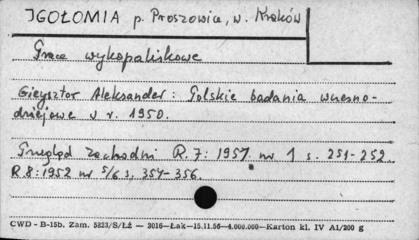 IGOŁOMIA p. Proszowice, w. Kraków
Prace wykopaliskowe
Gieysztor Aleksander: Polskie badania wczesno-
dziejowe w r. 1950.
Przegląd Zachodni R.7: 1951 nr 1 s. 251-252
R.8: 1952 nr 5/6 s. 354-356.
CWD - B-15b. Zam. 5823/S/ŁŻ — 3016—Łak—15.11.56—4.000.000—Karton kl. IV A1/200 g